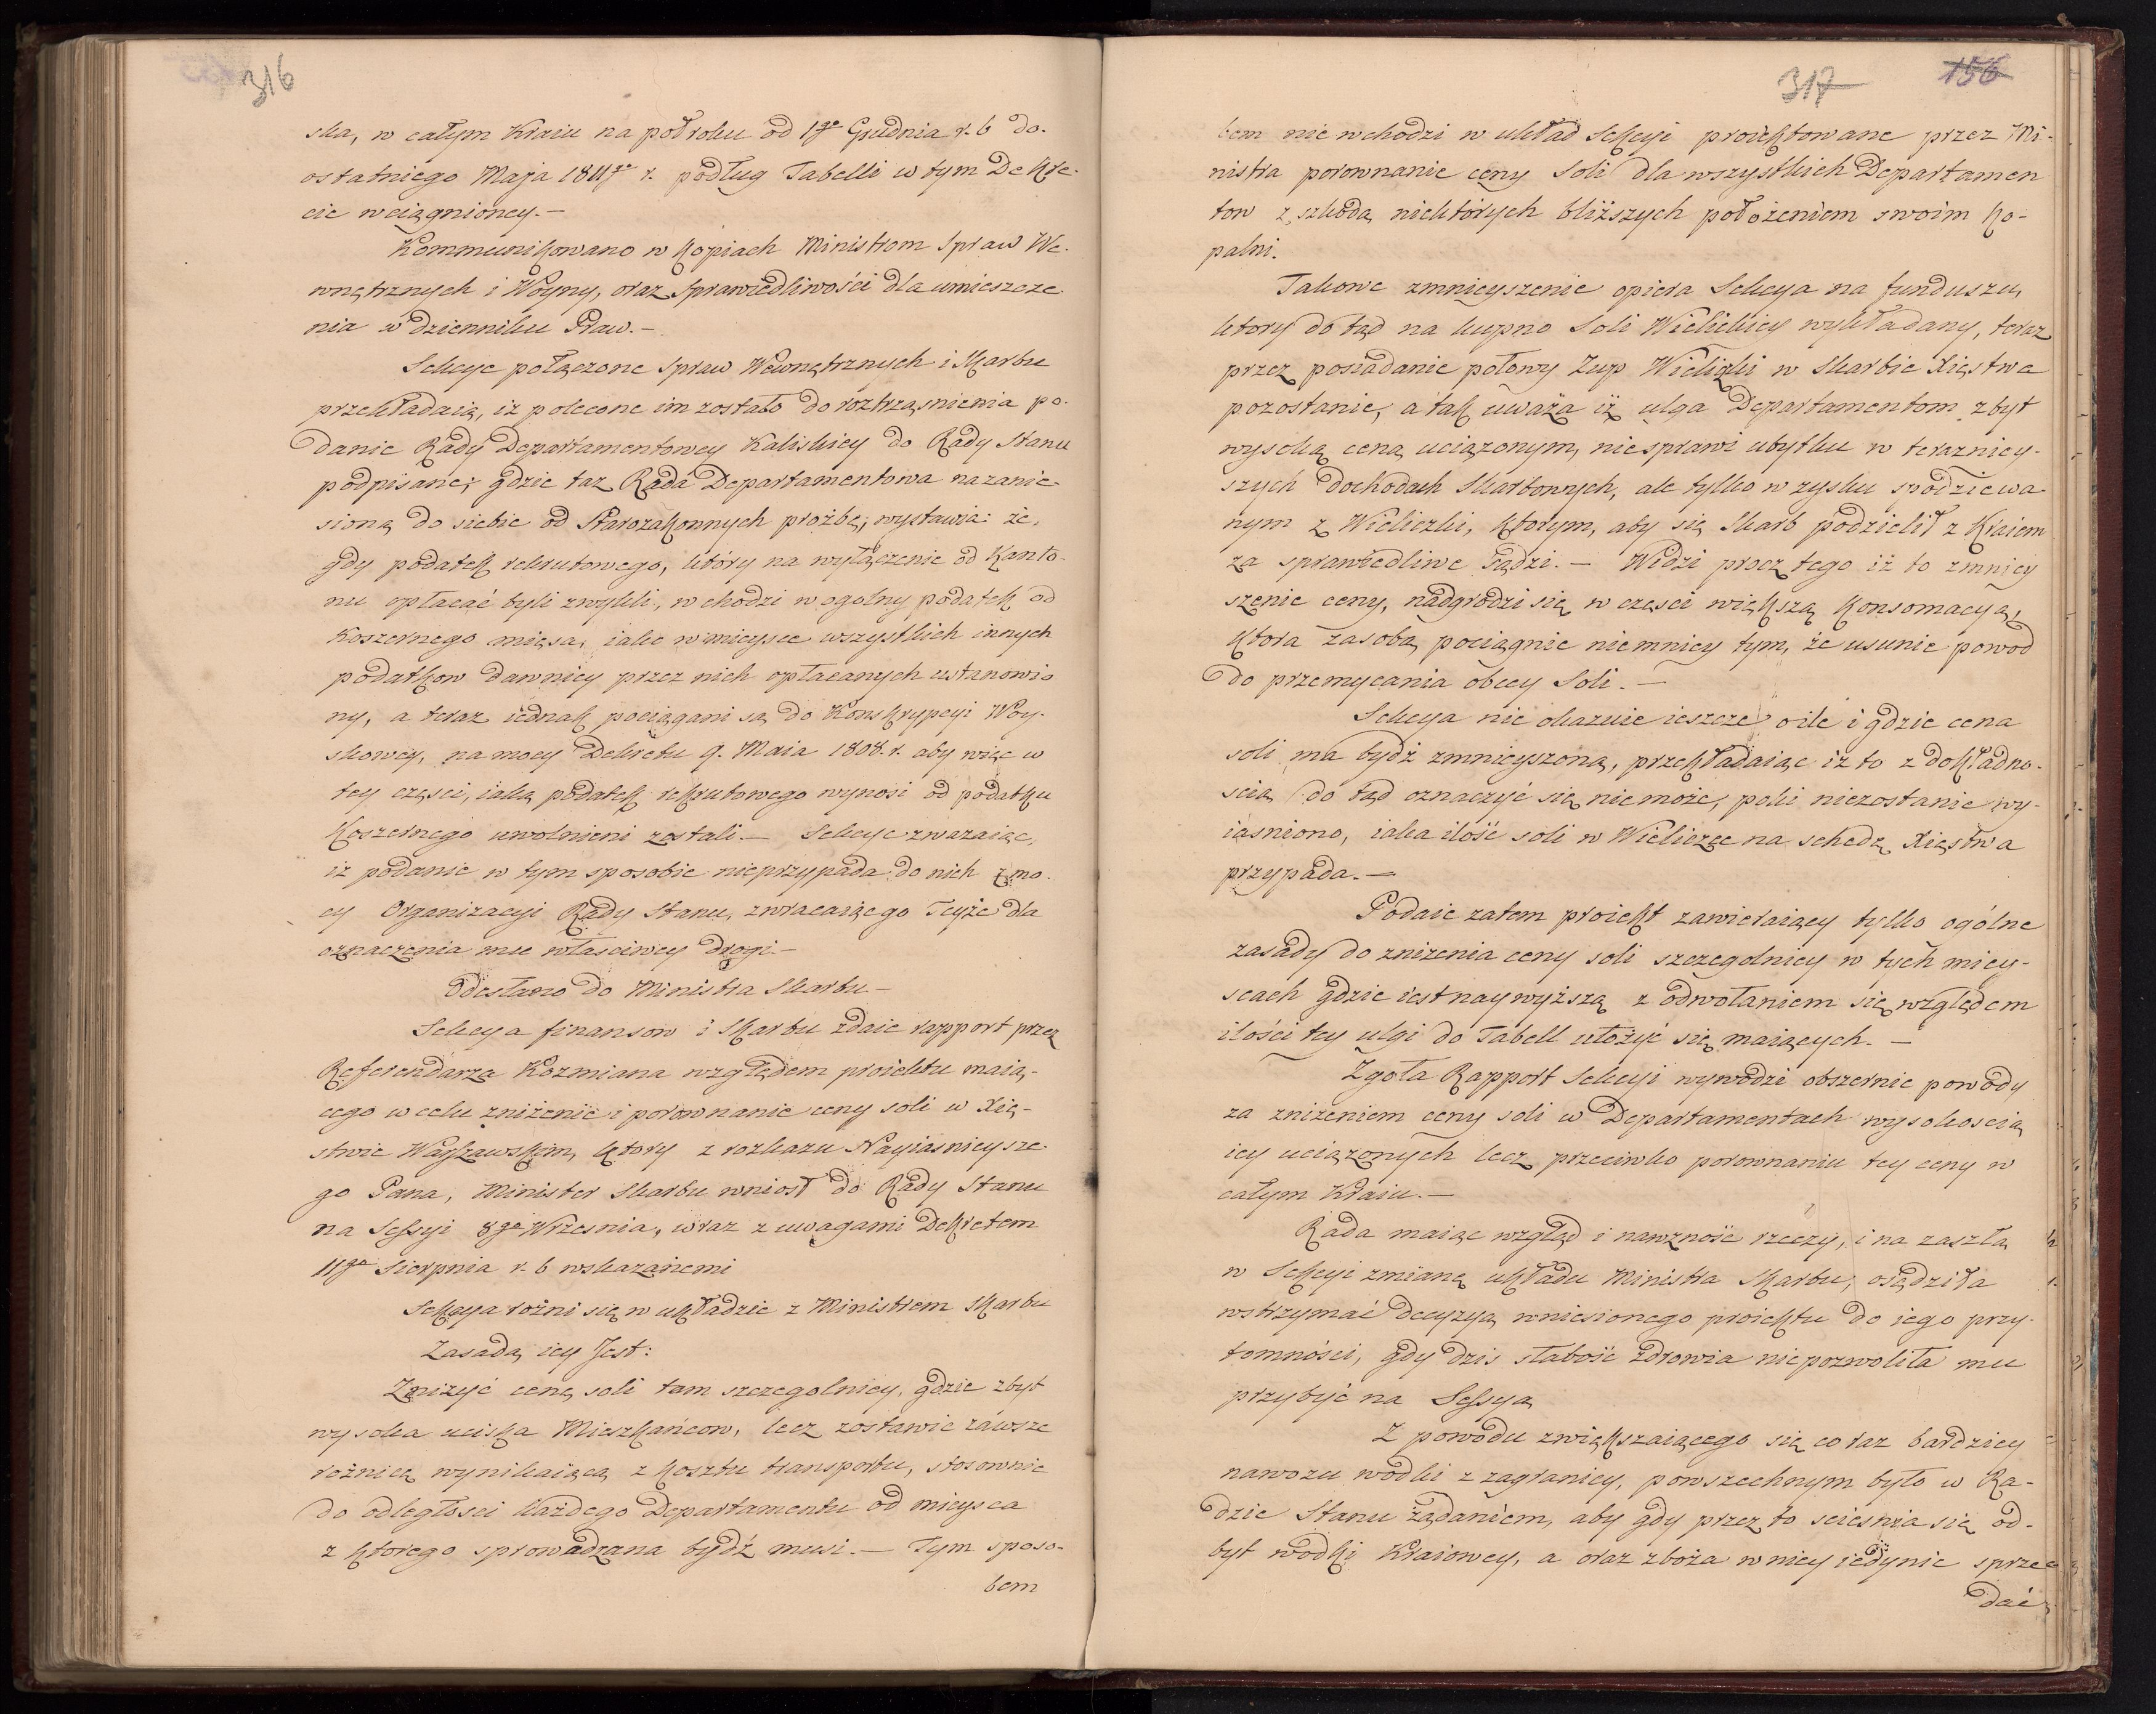 316
ska, w całym Kraiu na połroku od 1go Grudnia r. b do
ostatniego Maja 1811go r. podług Tabelli w tym Dekre-
cie wciągnioney.—
Kommunikowano w kopiach Ministrom Spraw We-
wnętrznych i Woyny, oraz Sprawiedliwości dla umieszcze
nia w dzienniku Praw.—
Sekcye połączone Spraw Wewnętrznych i Skarbu
przekładaią, iż polecone im zostało do roztrząsnienia po-
danie Rady Departamentowey Kaliskiey do Rady Stanu
podpisane; gdzie taz Rada Departamentowa na zanie-
sioną do siebie od Starozakonnych proźbę; wystawia: że,
gdy podatek rekrutowego, który na wyłączenie od Kanto-
nu opłacać byli zwykli, wchodzi w ogolny podatek od
Koszernego mięsa, iako w mieysce wszystkich innych
podatkow dawniey przez nich opłacanych ustanowio
ny, a teraz iednak pociągani są do Konskrypcyi Woy-
skowey, na mocy Dekretu 9. Maia 1808. r. aby więc w
tey częsci, iaką podatek rekrutowego wynosi od podatku
Koszernego uwolnieni zostali.— Sekcye zwazaiąc,
iż podanie w tym sposobie nieprzypada do nich z mo-
cy Organizacyi Rady Stanu, zwracaią go Teyże dla
oznaczenia mu własciwey drogi.—
Odesłano do Ministra Skarbu—
Sekcya finansow i Skarbu zdaie rapport przez
Referendarza Kozmiana względem proiektu maią-
cego w celu zniżenie i porownanie ceny soli w Xię-
stwie Warszawskim, ktory z rozkazu Nayiasnieysze-
go Pana, Minister Skarbu wniosł do Rady Stanu
na Sessyi 8go Wrzesnia, wraz z uwagami Dekretem
11go Sierpnia r. b wskazanemi
Sekcya rożni się w układzie z Ministrem Skarbu
Zasadą iey Jest:
Zniżyć cenę soli tam szczegolniey, gdzie zbyt
wysoka uciska Mieszkańcow, lecz zostawic zawsze
rożnicę wynikaiącą z kosztu transportu, stosownie
do odległosci każdego Departamentu od mieysca
z ktorego sprowadzana bydź musi.— Tym sposo-
bem
317 156
bem nie wchodzi w układ Sekcyi proiektowane przez Mi-
nistra porownanie ceny Soli dla wszystkich Departamen
tow z szkodą niektórych bliższych położeniem swoim ko-
palni.
Takowe zmnieyszenie opiera Sekcya na funduszu,
ktory do tąd na kupno Soli Wielickiey wykładany, teraz
przez posiadanie połowy Zup Wieliczki w Skarbie Xięstwa
pozostanie, a tak uważa iż ulga Departamentom zbyt
wysoką ceną uciązonym, niesprawi ubytku w terazniey-
szych dochodach Skarbowych, ale tylko w zysku spodziewa-
nym z Wieliczki, ktorym, aby się Skarb podzielił z Kraiem
za sprawiedliwe sądzi.— Widzi procz tego iż to zmniey
szenie ceny, nadgrodzi się w czesci większą konsomacyą,
ktora za sobą pociągnie niemniey tym, że usunie powod
do przemycania obcey Soli.—
Sekcya nie okazuie ieszcze o ile i gdzie cena
soli ma bydź zmnieyszoną, przekładaiąc iż to z dokładno-
scią do tąd oznaczyć się nie może, poki niezostanie wy-
iasniono, iaka ilość soli w Wieliczce na schedę Xięstwa
przypada.—
Podaie zatem proiekt zawieraiący tylko ogólne
zasady do zniżenia ceny soli szczegolniey w tych miey-
scach gdzie iest naywyższą z odwołaniem się względem
ilości tey ulgi do Tabell ułożyć się maiących.—
Zgoła Rapport Sekcyi wywodzi obszernie powody
za zniżeniem ceny soli w Departamentach wysokoscią
iey uciązonych lecz przeciwko porownaniu tey ceny w
całym Kraiu.—
Rada maiąc wzgląd i na ważność rzeczy, i na zaszłą
w Sekcyi zmianę układu Ministra Skarbu, osądziła
wstrzymać decyzyą wniesionego proiektu do iego przy-
tomności, gdy dzis słabość zdrowia niepozwoliła mu
przybyć na Sessyą
Z powodu zwiększaiącego się coraz bardziey
nawozu wodki z zagranicy, powszechnym było w Ra-
dzie Stanu żądaniem, aby gdy przez to sciesnia się od-
byt wodki Kraiowey, a oraz zboża w niey iedynie sprze
dać